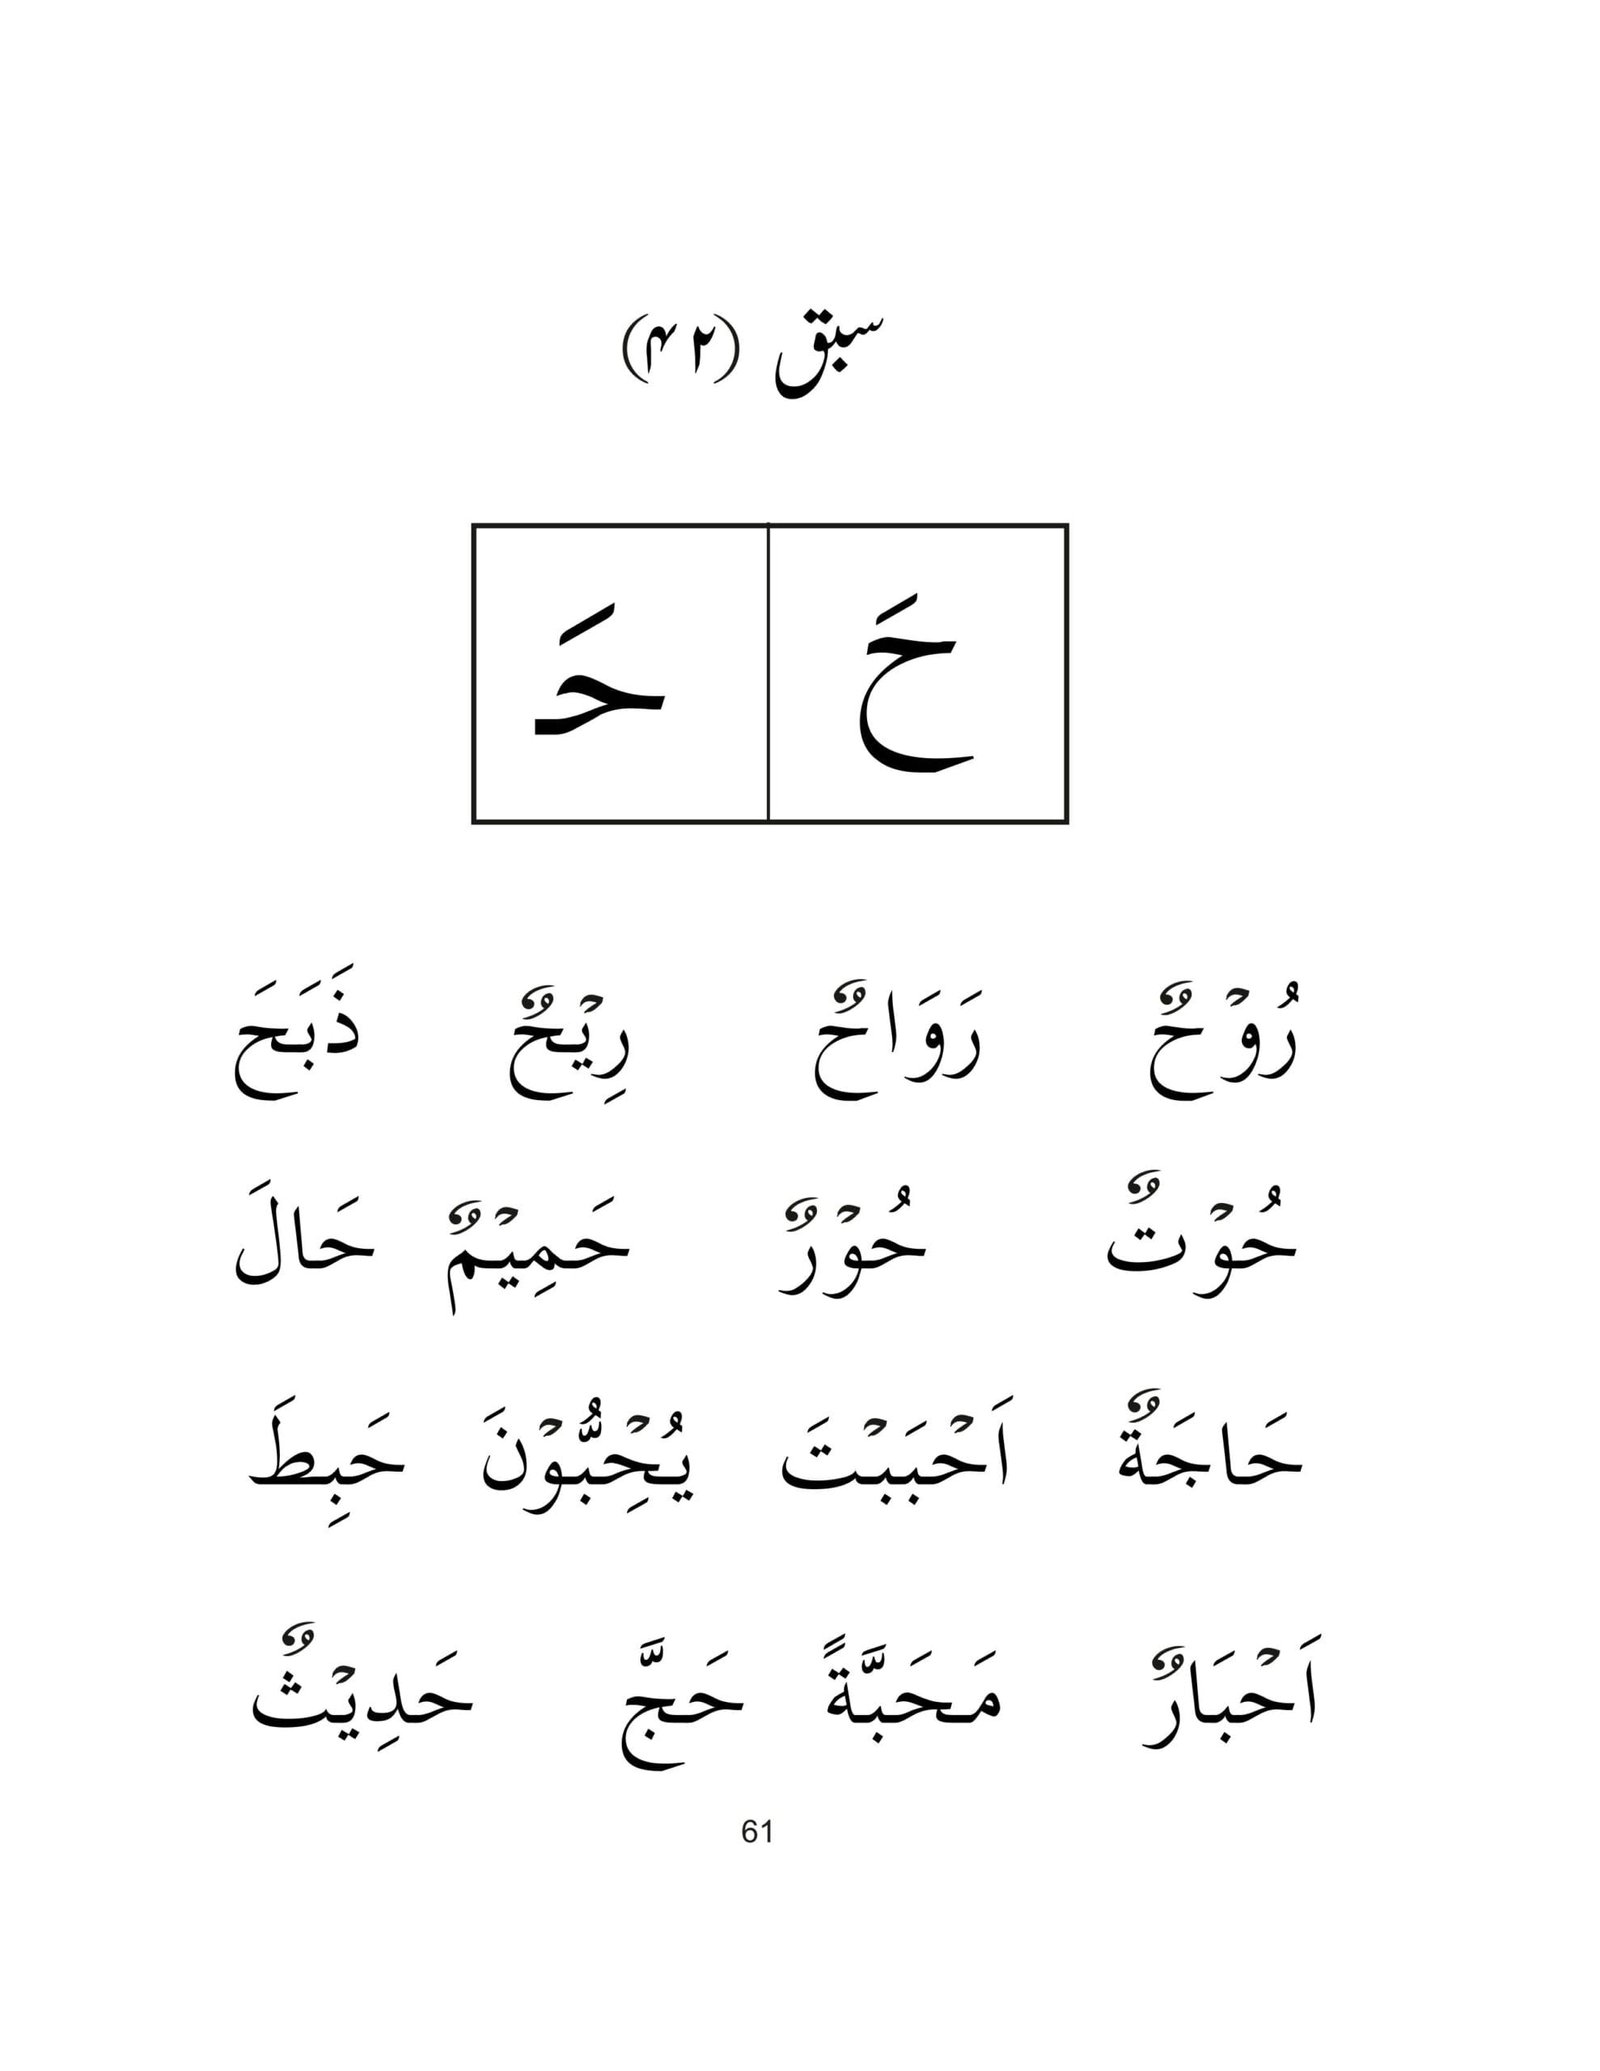 سبق (۴۲)
حَ حَـ
رُوْحٌ رَوَاحٌ رِيْحٌ ذَبَحَ
حُوْتٌ حُوْرٌ حَمِيْمٌ حَالَ
حَاجَةٌ اَحْبَبْتَ يُحِبُّوْنَ حَبِطَ
اَحْبَارٌ مَحَبَّةً حَجَّ حَدِيْثٌ
61